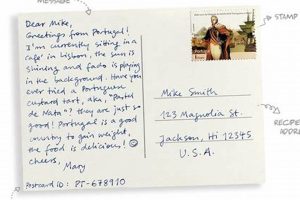 MESSAGE
Dear Mike,
Greetings from Portugal!
I'm currently sitting in a
café in Lisbon, the sun is
shining and fado is playing
in the background. Have you
ever tried a Portuguese
custard tart, aka, "Pastel
de Nata"? they are just so
good! Portugal is a good
country to gain weight,
the food is delicious!
cheers,
Mary
Postcard ID: PT-678910
STAMP
Mike Smith
123 Magnolia St.
Jackson, Hi 12345
U.S.A.
RECIPIE
ADDRE